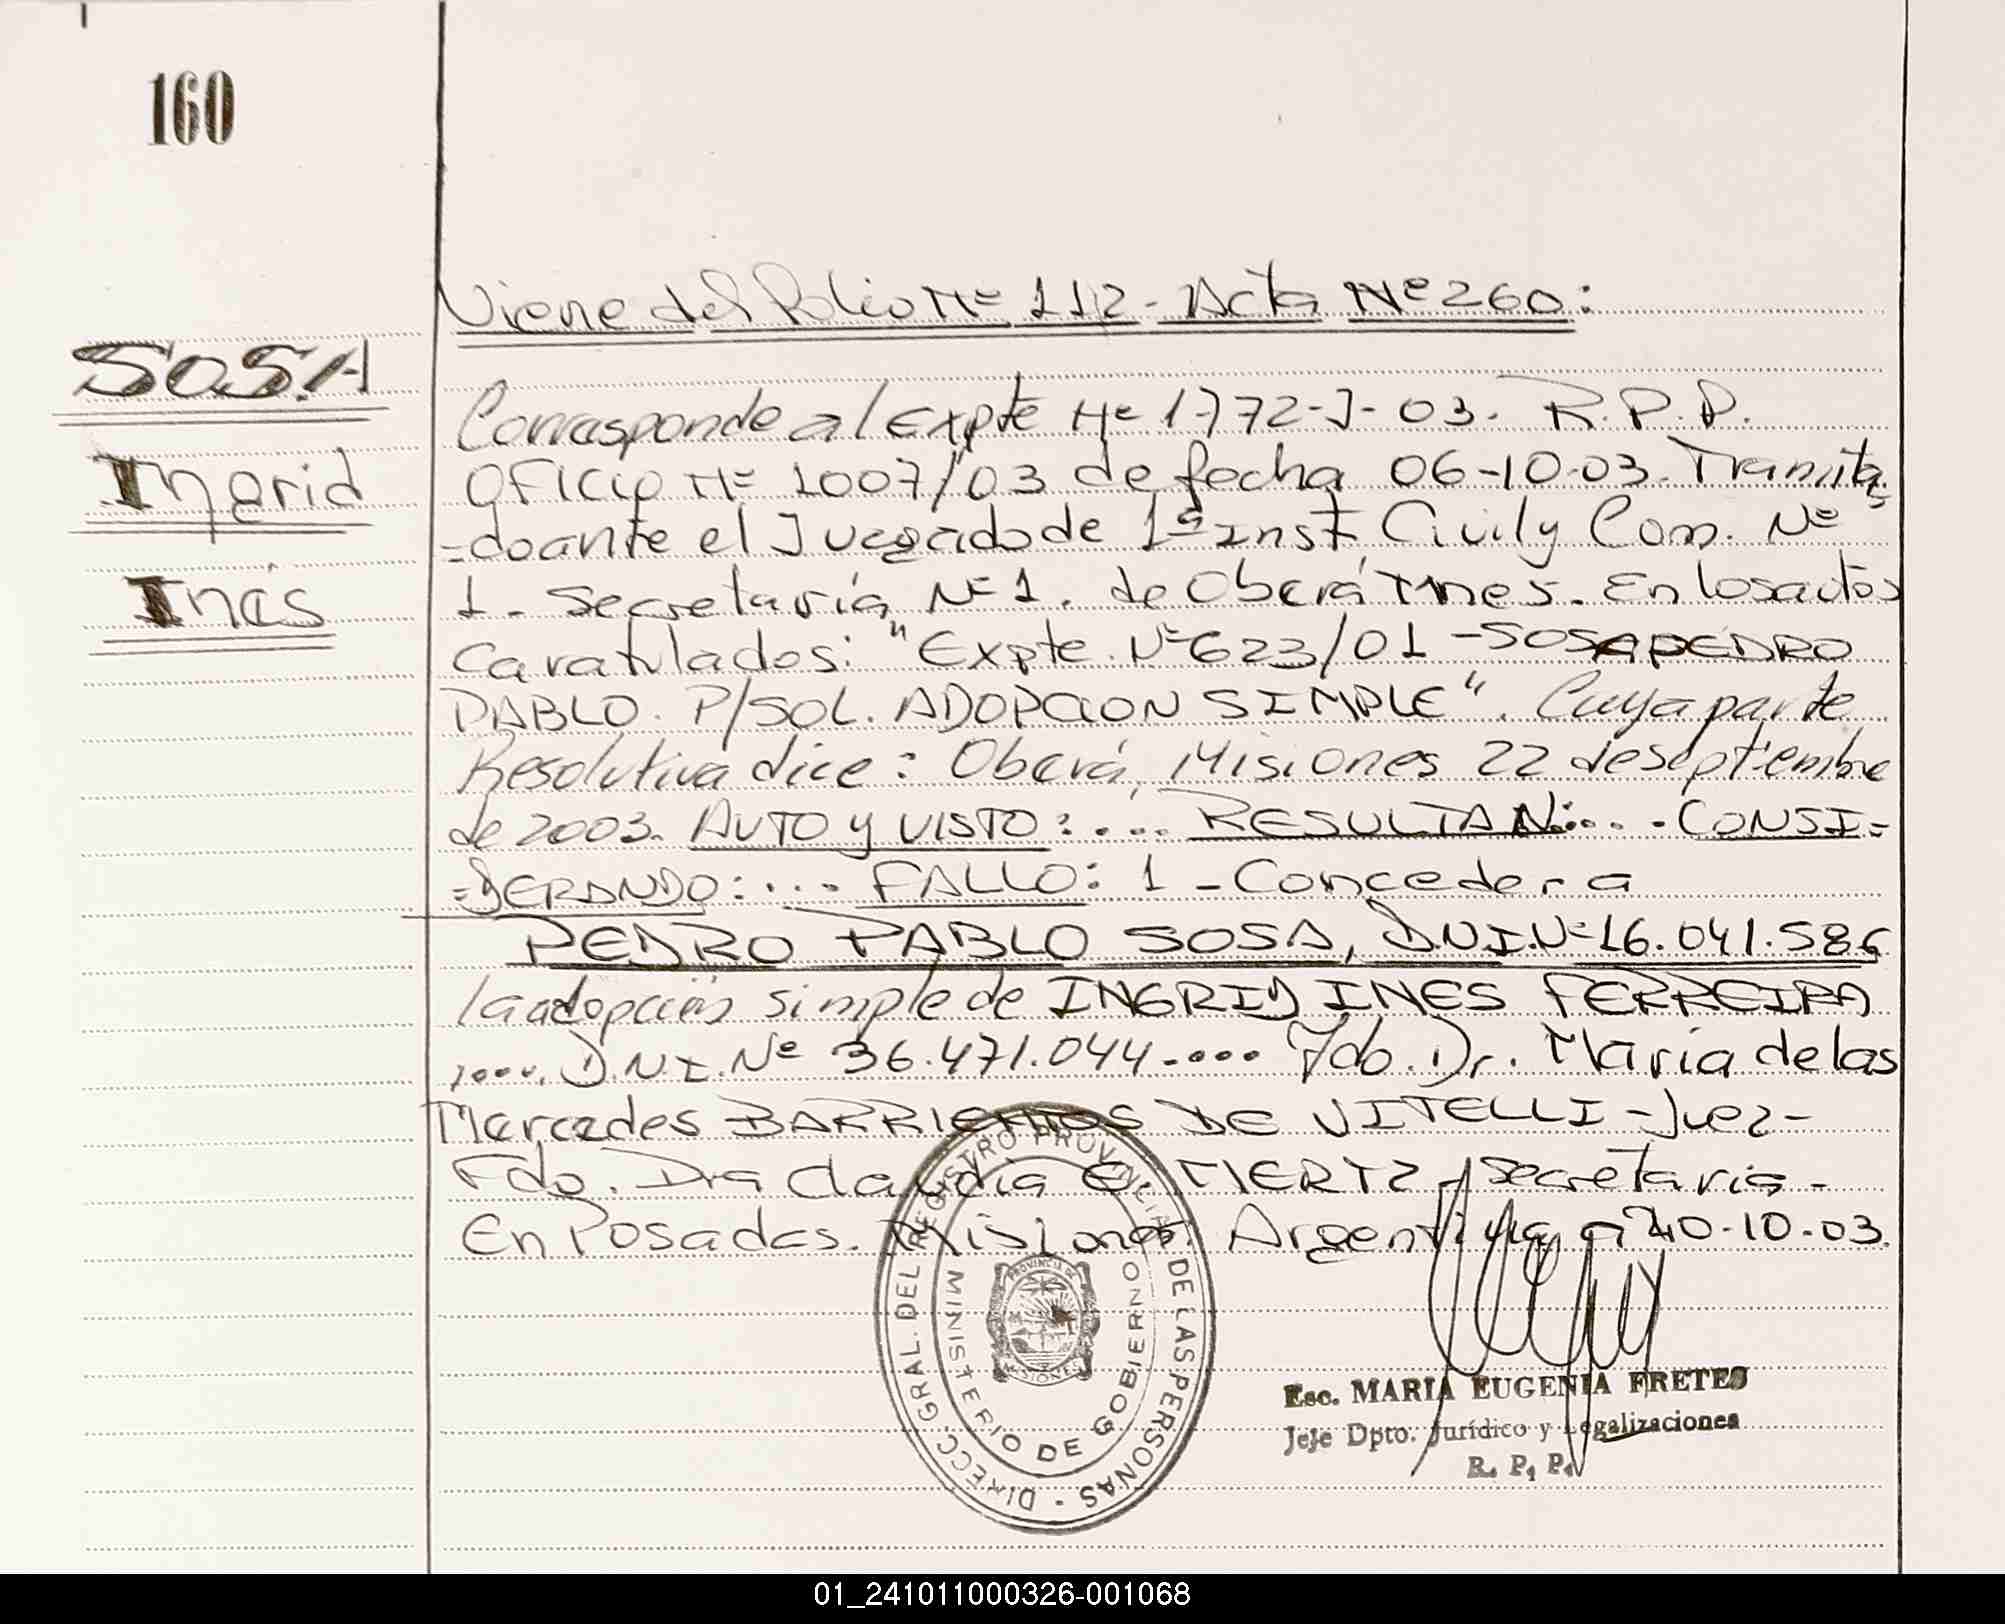 160
Viene del Folio Nº 112 - Acta Nº 260:
SOSA
Ingrid
Inés
Corresponde al Expte Nº 1772-J-03. R.P.P.
OFICIO Nº 1007/03 de fecha 06-10-03. Tramita
-do ante el Juzgado de 1ª Inst Civil y Com. Nº
1 - Secretaría Nº 1. de Oberá Mnes. En los autos
Caratulados: "Expte. Nº 623/01 - SOSA PEDRO
PABLO. P/SOL. ADOPCION SIMPLE". Cuya parte
Resolutiva dice: Oberá, Misiones 22 de septiembre
de 2003. AUTO y VISTO: .... RESULTAN: ... - CONSI-
-DERANDO: .... FALLO: 1 - Conceder a
PEDRO PABLO SOSA, D.N.I. Nº 16.041.586
la adopción simple de INGRID INES FERREIRA
..... D.N.I. Nº 36.471.044 .... Fdo. Dr. María de las
Mercedes BARRIENTOS DE VITELLI - Juez -
Fdo. Dra Claudia E. MERTZ - Secretaria -
En Posadas. Misiones Argentina a 10-10-03.
DIRECC. GRAL. DEL REGISTRO PROVINCIAL DE LAS PERSONAS -
MINISTERIO DE GOBIERNO
PROVINCIA DE
MISIONES
Esc. MARIA EUGENIA FRETES
Jefe Dpto. Jurídico y Legalizaciones
R. P. P.
01_241011000326-001068